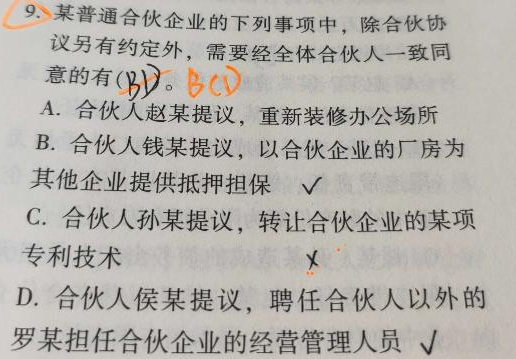 9. 某普通合伙企业的下列事项中，除合伙协
议另有约定外，需要经全体合伙人一致同
意的有(BD)。BCD
A. 合伙人赵某提议，重新装修办公场所
B. 合伙人钱某提议，以合伙企业的厂房为
其他企业提供抵押担保 ✓
C. 合伙人孙某提议，转让合伙企业的某项
专利技术 ✗
D. 合伙人侯某提议，聘任合伙人以外的
罗某担任合伙企业的经营管理人员 ✓